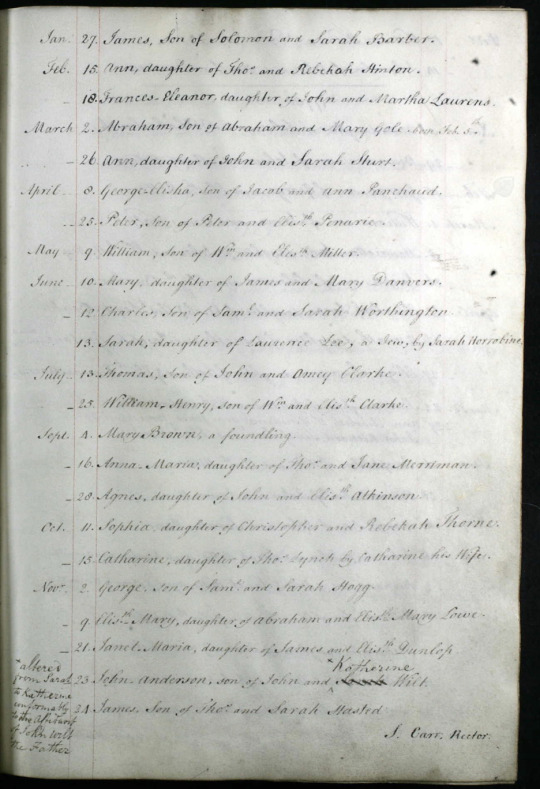 Jan. 27. James, Son of Solomon and Sarah Barber.
Feb. 15. Ann, daughter of Thos. and Rebekah Hinton.
- 18. Frances-Eleanor, daughter of John and Martha Laurens.
March 2. Abraham, Son of Abraham and Mary Gole. born Feb. 5th.
- 26. Ann, daughter of John and Sarah Hurst.
April 8. George-Elisha, Son of Jacob and Ann Panchaud.
- 25. Peter, Son of Peter and Elisth. Penarie.
May 9. William, Son of Wm and Elisth. Miller.
June 10. Mary, daughter of James and Mary Danvers.
- 12. Charles, Son of Saml. and Sarah Worthington.
13. Sarah, daughter of Laurence Lee, a Jew, by Sarah Horrobine.
July 13. Thomas, Son of John and Amey Clarke.
- 25. William-Henry, son of Wm and Elisth. Clarke.
Sept. 4. Mary Brown, a foundling.
- 16. Anna-Maria, daughter of Thos. and Jane Merriman.
- 28. Agnes, daughter of John and Elisth. Atkinson
Oct. 11. Sophia, daughter of Christopher and Rebekah Thorne.
- 15. Catharine, daughter of Thos. Lynch by Catharine his Wife.
Novr. 2. George, Son of Saml. and Sarah Hogg.
- 9. Elisth. Mary, daughter of Abraham and Elisth. Mary Lowe.
- 21. Janet-Maria, daughter of James and Elisth. Dunlop.
Katherine
23. John-Anderson, son of John and Sarah Wilt.
24. James, Son of Thos. and Sarah Hasted
altered
from Sarah
to Katherine
conformably
to the
of John Wilt
the Father
S. Carr. Rector